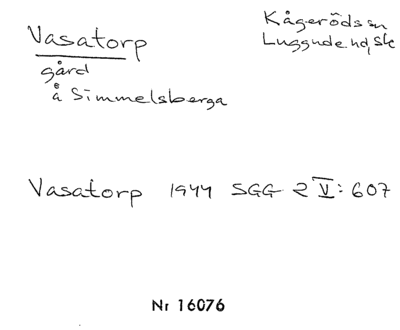 Vasatorp
gård
å Simmelsberga
Kågeröds sn
Luggude hd, Sk
Vasatorp 1944 SGG 2 V: 607
Nr 16076